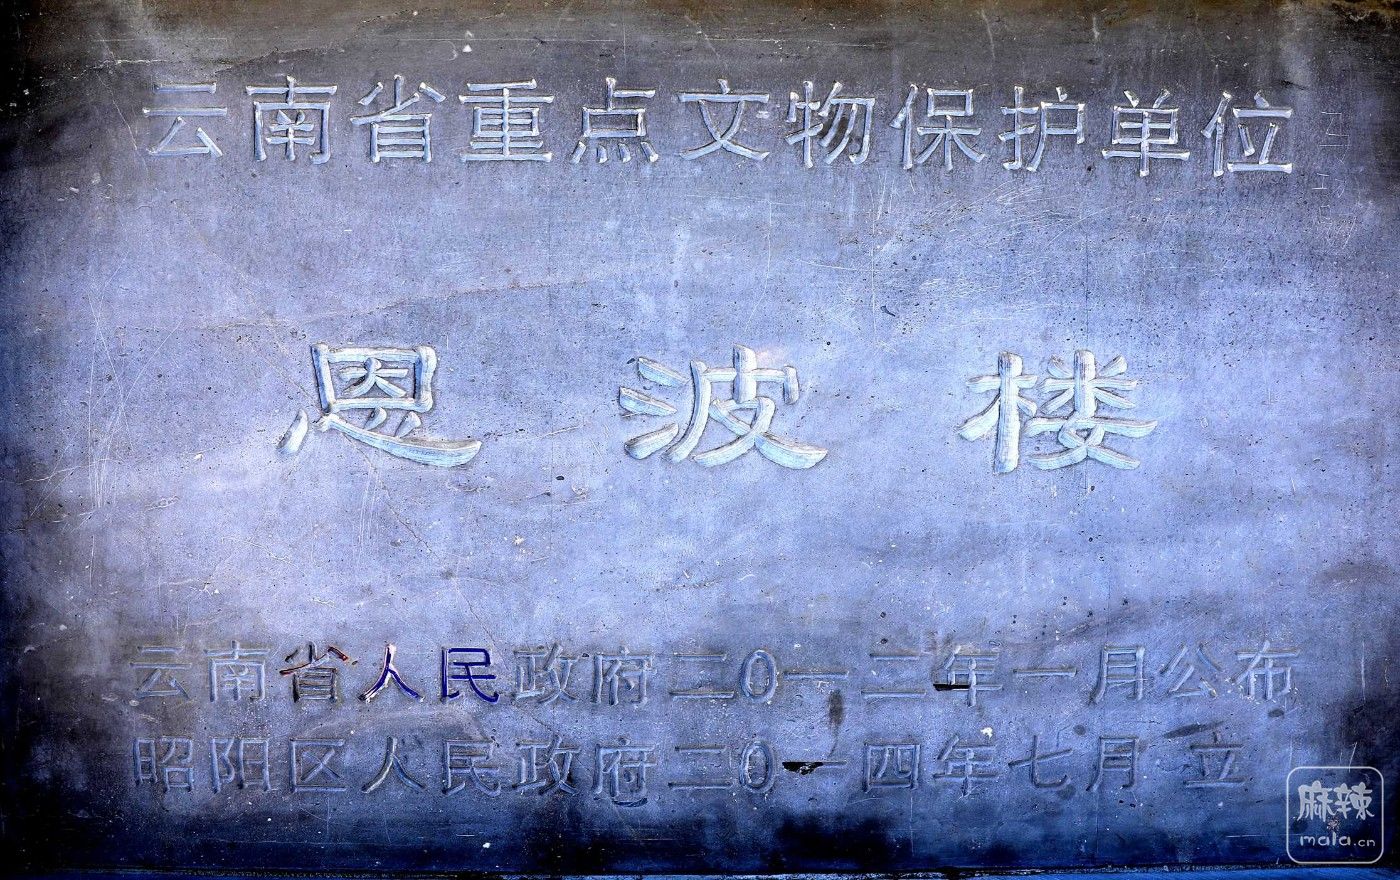 云南省重点文物保护单位
恩波楼
云南省人民政府二0一二年一月公布
昭阳区人民政府二0一四年七月 立
麻辣
mala.cn